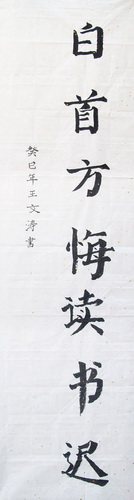 白首方悔读书迟
癸巳年王文涛书